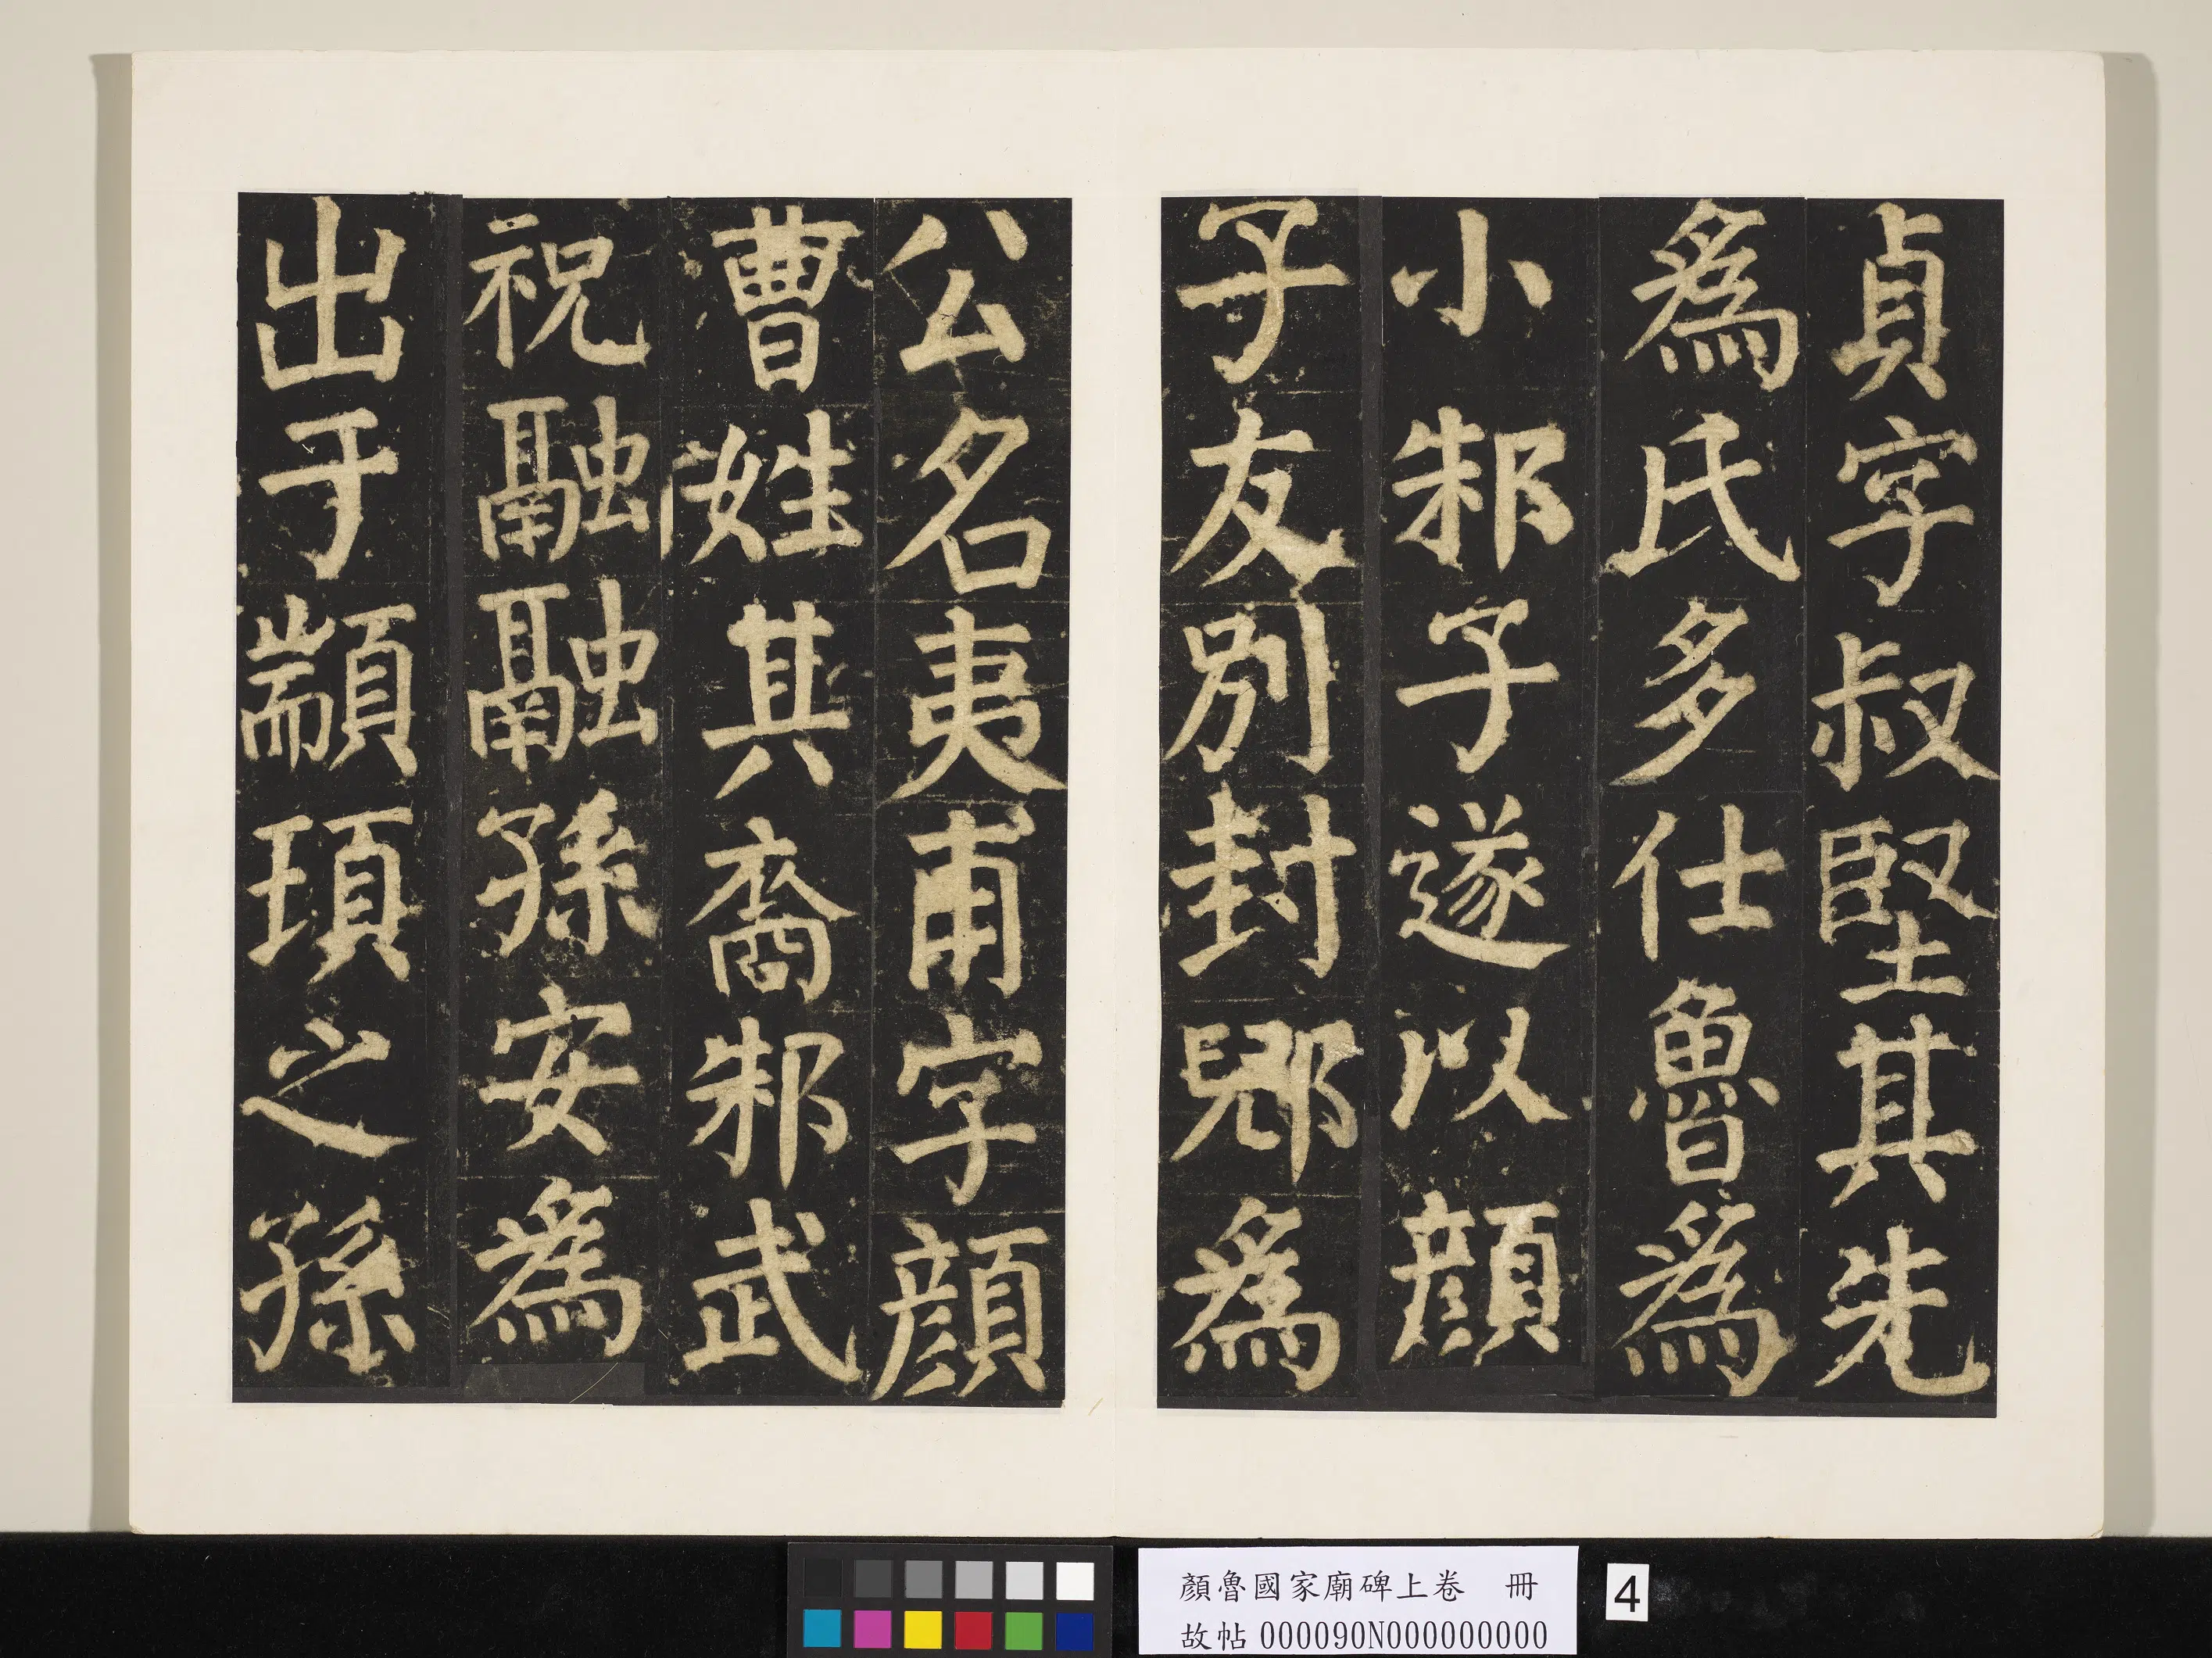 貞字叔堅其先
為氏多仕魯為
小邾子遂以顏
子友別封郳為
公名夷甫字顏
曹姓其裔邾武
祝融融孫安為
出于顓頊之孫
顏魯國家廟碑上卷 冊
故帖000090N000000000
4